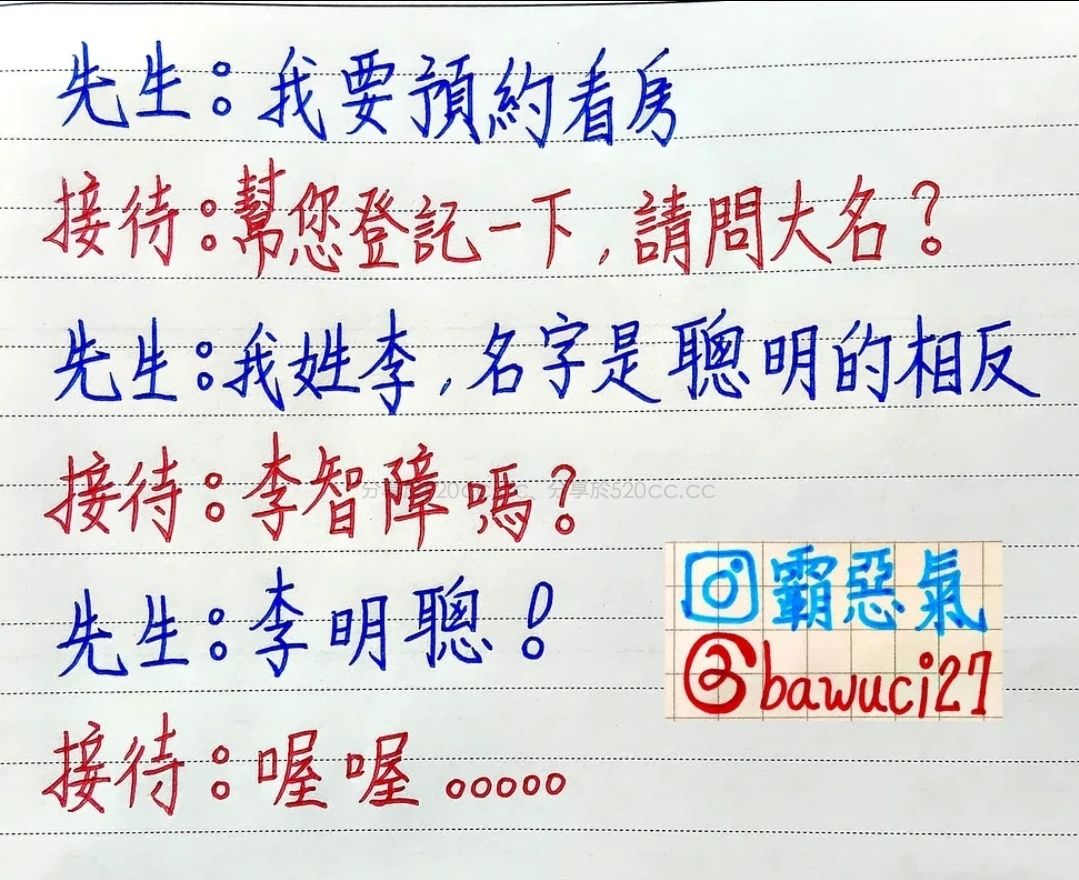 先生：我要預約看房
接待：幫您登記一下，請問大名？
先生：我姓李，名字是聰明的相反
接待：李智障嗎？
分享於520cc.cc、分享於520cc.cc
先生：李明聰！
霸惡氣
@bawuci27
接待：喔喔。。。。。